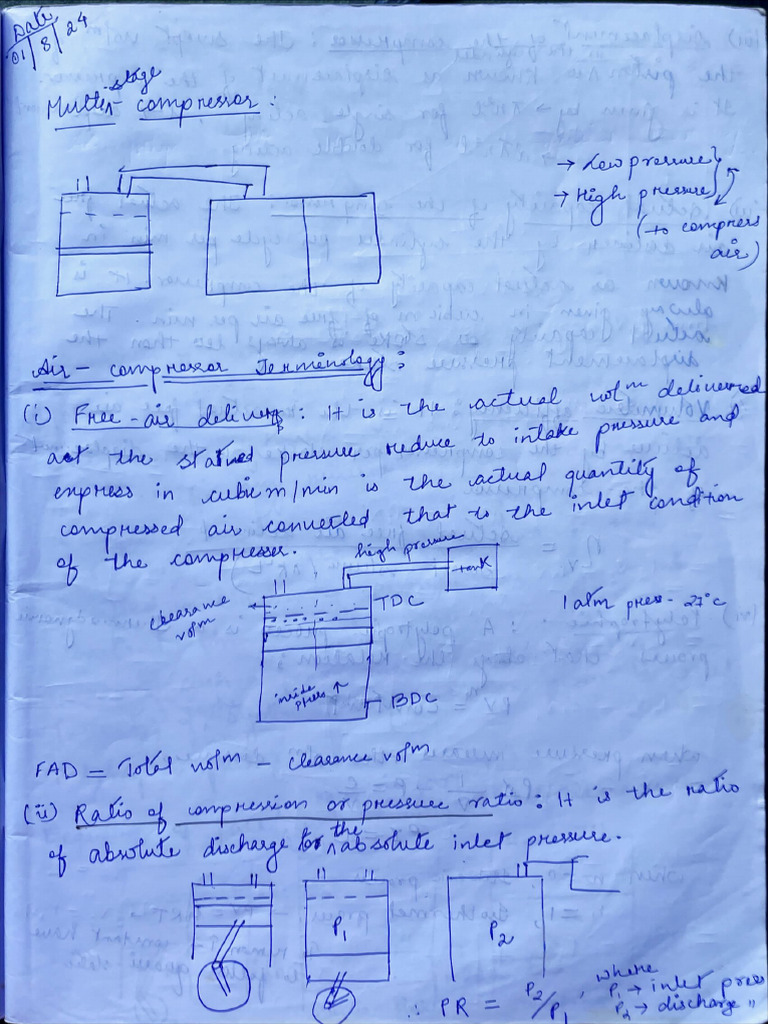 Date
01/8/24
Multi-stage compressor:
→ Low pressure
→ High pressure
(to compress
air)
Air-compressor Terminology:
(i) Free-air delivery: It is the actual volm delivered
at the stated pressure reduce to intake pressure and
express in cubic m/min is the actual quantity of
compressed air converted that to the inlet condition
of the compresser.
high pressure
tank
clearance
volm
TDC
1 atm press- 27°C
inside
press ↑
BDC
FAD = Total volm - clearance volm
(ii) Ratio of compression or pressure ratio: It is the ratio
of absolute discharge to the absolute inlet pressure.
P1
P2
∴ PR = P2/P1, where
P1 → inlet press
P2 → discharge "